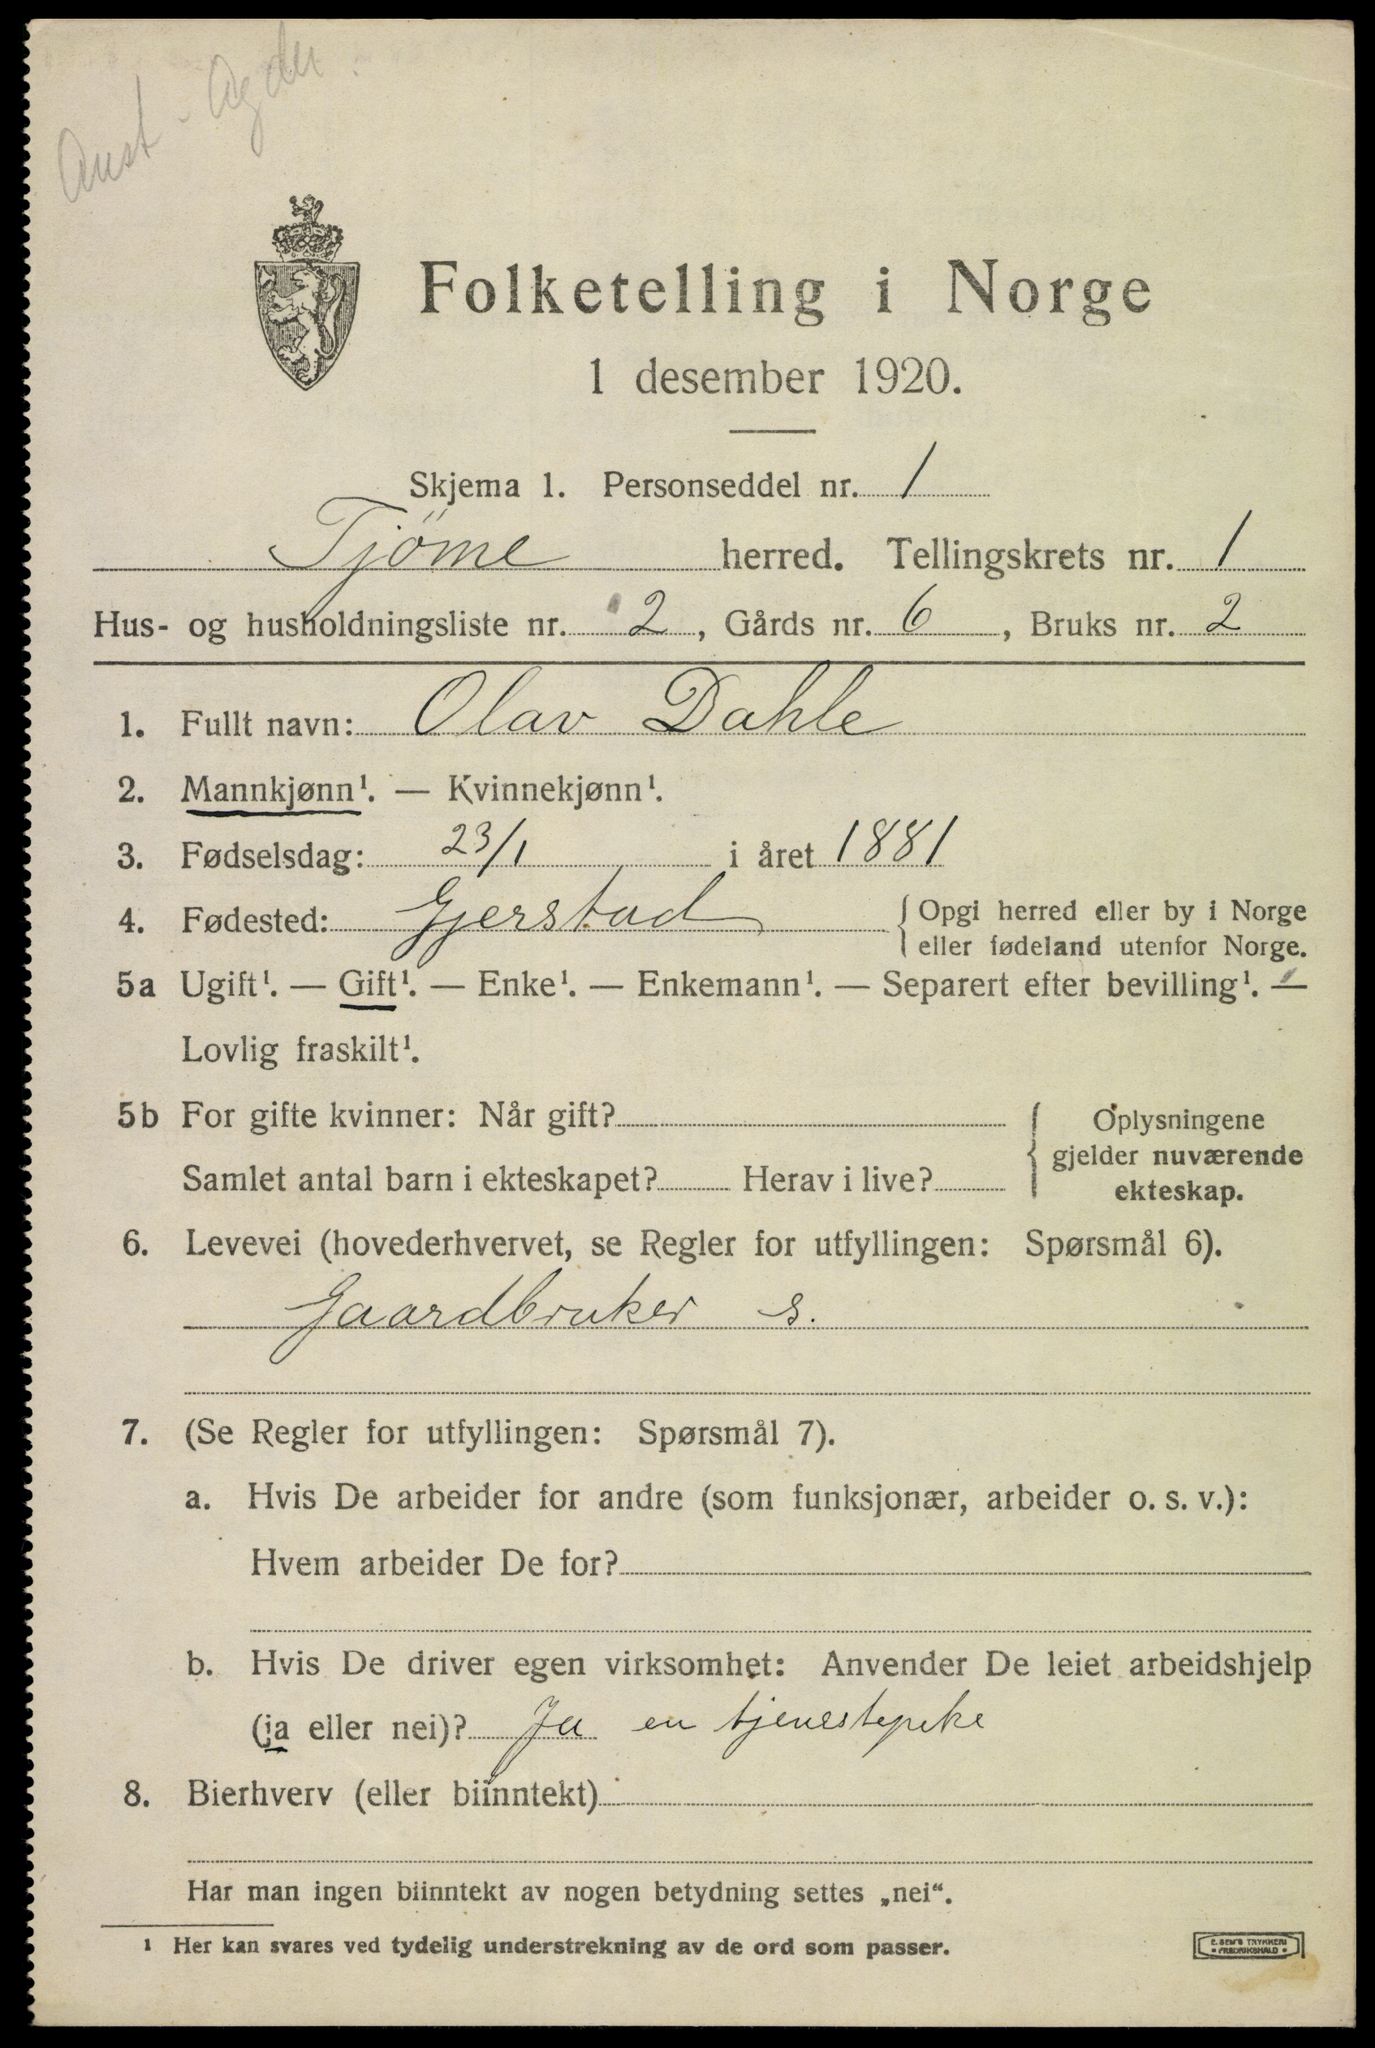 Aust-Agder.
Folketelling i Norge
1 desember 1920.
Skjema 1. Personseddel nr. 1
Tjöme herred. Tellingskrets nr. 1
Hus- og husholdningsliste nr. 2, Gårds nr. 6, Bruks nr. 2
1. Fullt navn: Olav Dahle
2. Mannkjønn¹. — Kvinnekjønn¹.
3. Fødselsdag: 23/1 i året 1881
4. Fødested: Gjerstad { Opgi herred eller by i Norge
eller fødeland utenfor Norge.
5a Ugift¹. — Gift¹. — Enke¹. — Enkemann¹. — Separert efter bevilling¹. —
Lovlig fraskilt¹.
5b For gifte kvinner: Når gift? { Oplysningene
gjelder nuværende
Samlet antal barn i ekteskapet? Herav i live? ekteskap.
6. Levevei (hovederhvervet, se Regler for utfyllingen: Spørsmål 6).
Gaardbruker s.
7. (Se Regler for utfyllingen: Spørsmål 7).
a. Hvis De arbeider for andre (som funksjonær, arbeider o. s. v.):
Hvem arbeider De for?
b. Hvis De driver egen virksomhet: Anvender De leiet arbeidshjelp
(ja eller nei)? Ja en tjenestepike
8. Bierhverv (eller biinntekt)
Har man ingen biinntekt av nogen betydning settes „nei“.
¹ Her kan svares ved tydelig understrekning av de ord som passer.
E. SEM'S TRYKKERI
• FREDRIKSHALD •